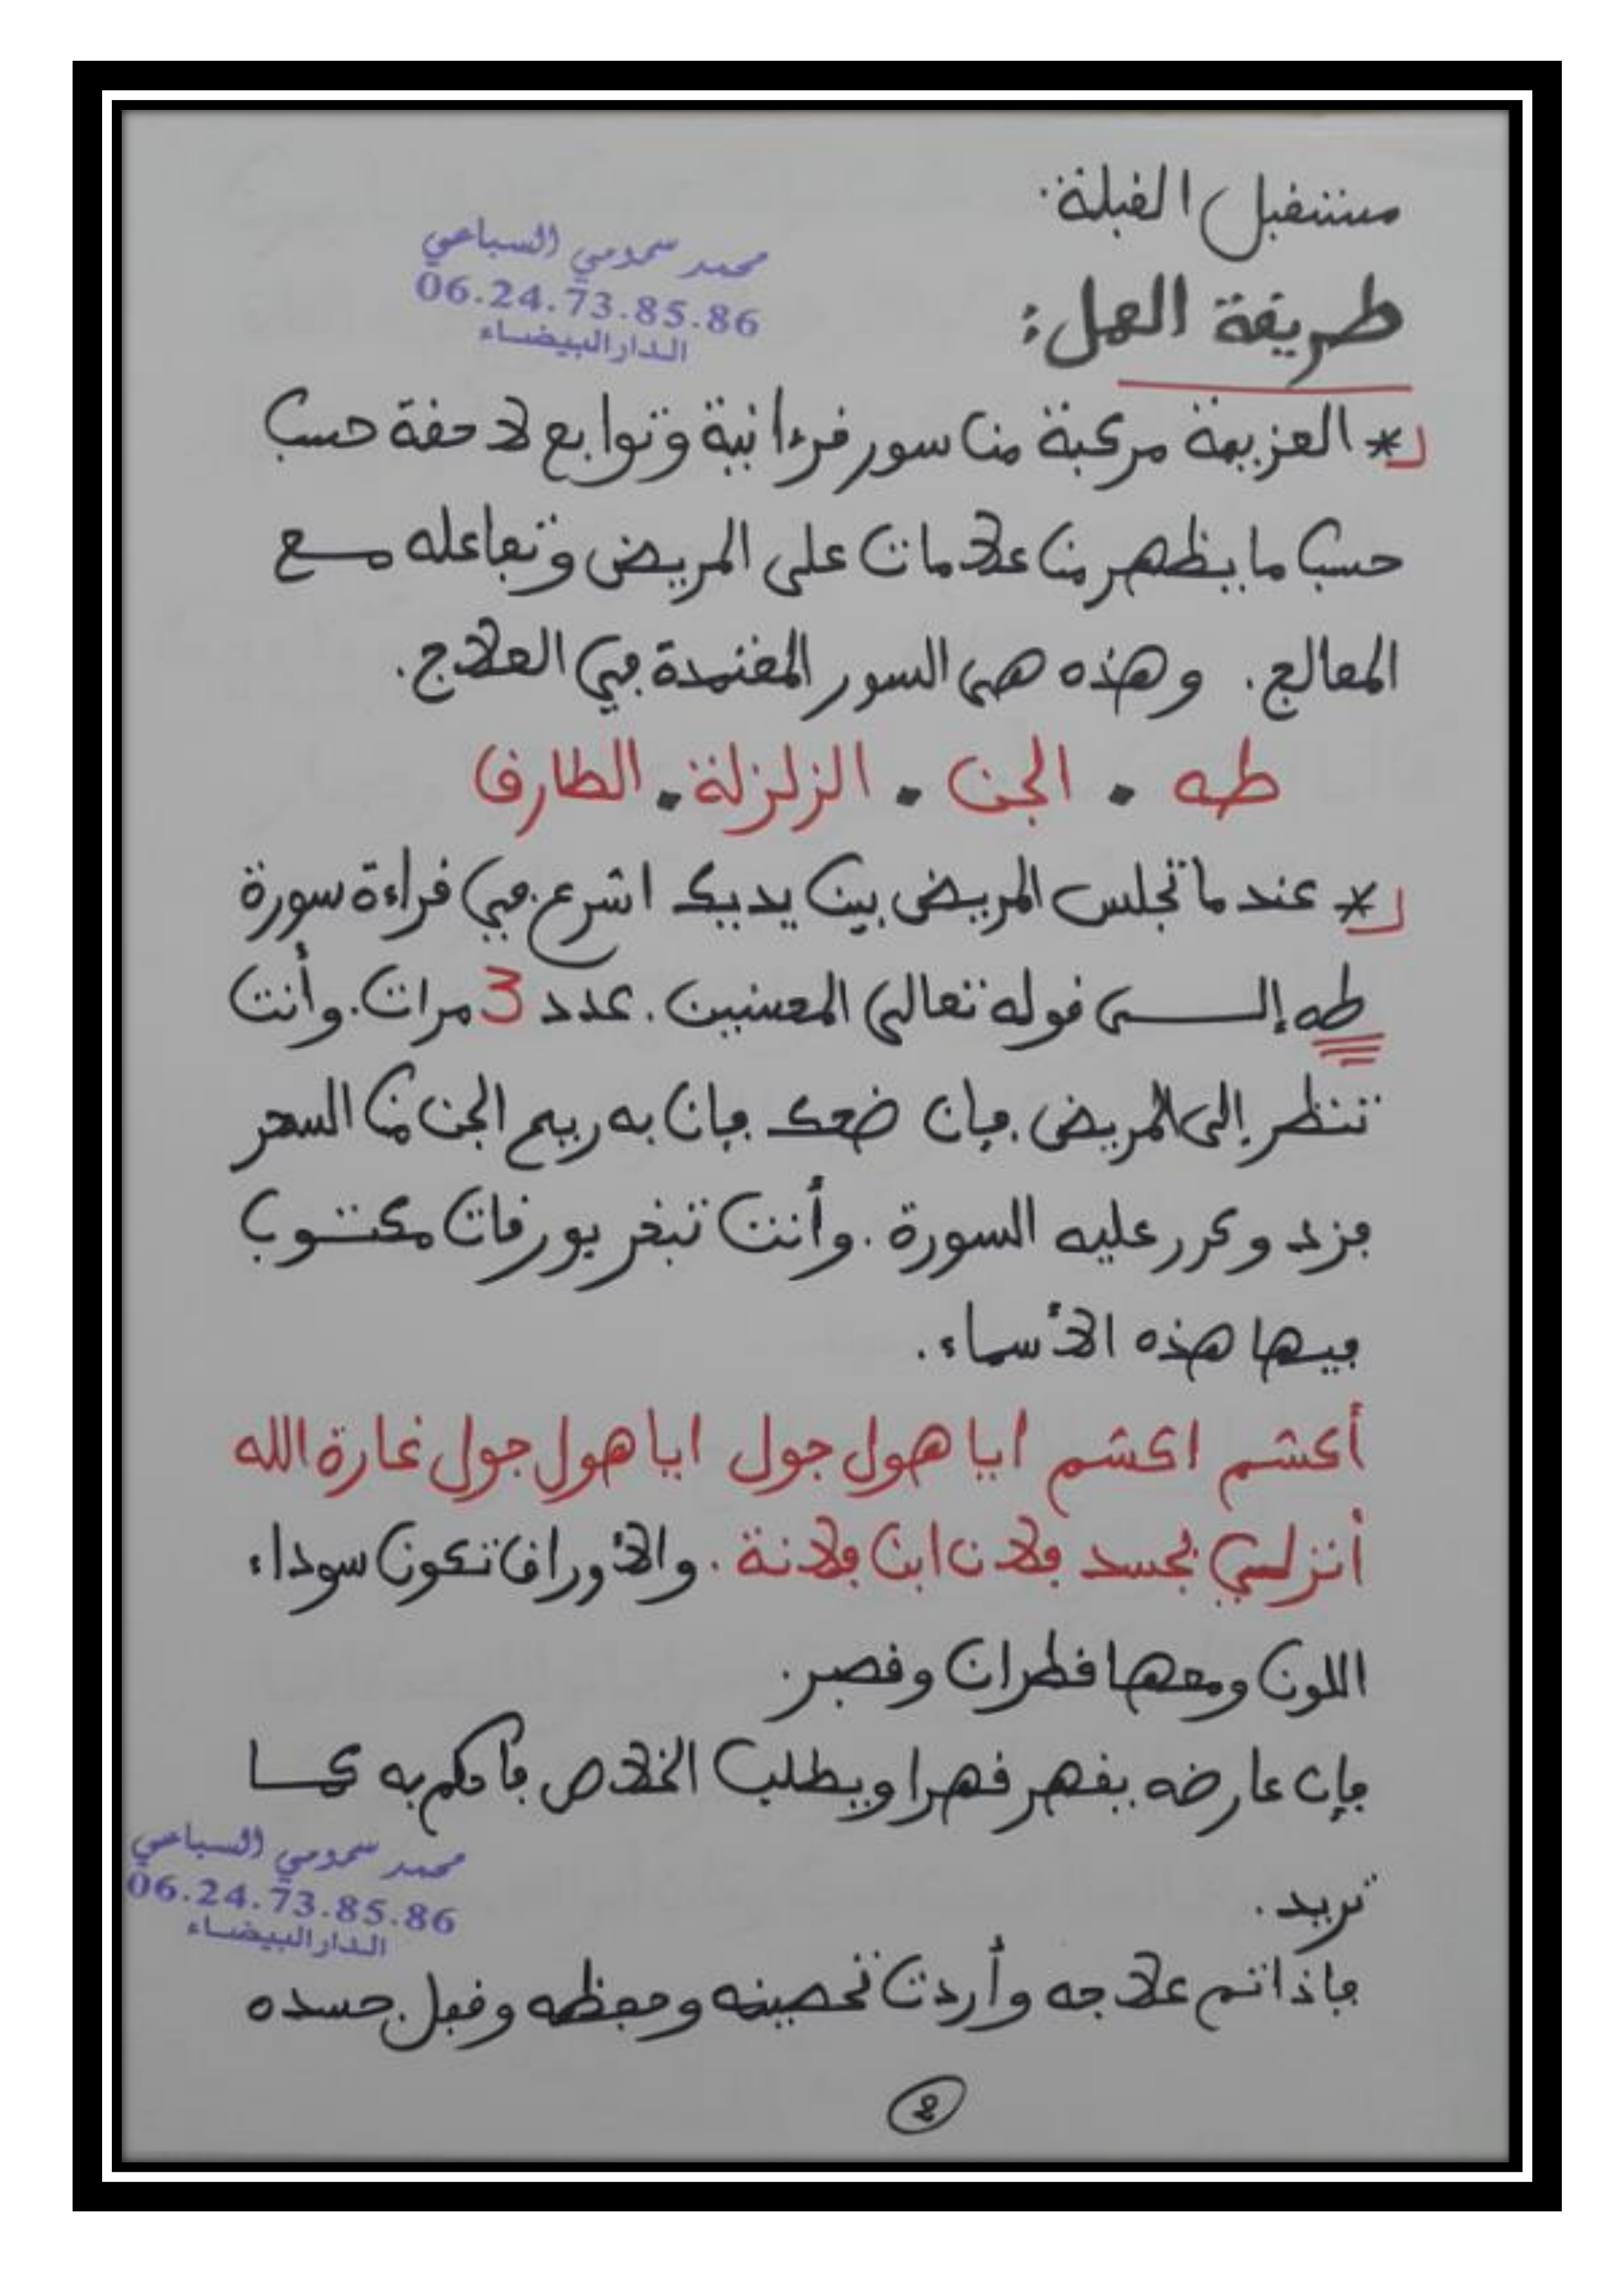 مستقبل القبلة.
محمد سمومي السباعي
06.24.73.85.86
الدار البيضاء
طريقة العمل:
* العزيمة مركبة من سور قرءانية وتوابع لاحقة حسب
حسب ما يظهر من علامات على المريض وتفاعله مع
المعالج. وهذه هي السور المقتمدة في العلاج.
طه . الجن . الزلزلة . الطارق
* عند ما تجلس المريض بين يديك اشرع في قراءة سورة
طه إلى قوله تعالى المحسنين. عدد 3 مرات. وأنت
تنظر إلى المريض. فإن ضحك فإن به ريح الجن من السحر
فزد وكرر عليه السورة. وأنت تبخر بورقات مكتوب
فيها هذه الأسماء.
أكشم اكشم ايا هول جول ايا هول جول غارة الله
أنزلي بجسد فلان ابن فلانة. والأوراق تكون سوداء
اللون ومعها قطران وقصبر.
فإن عارضه يقهر قهرا ويطلب الخلاص فاحكم به كما
تريد.
محمد سمومي السباعي
06.24.73.85.86
الدار البيضاء
فإذا تم علاجه وأردت تحصينه وحفظه وقبل جسده
2